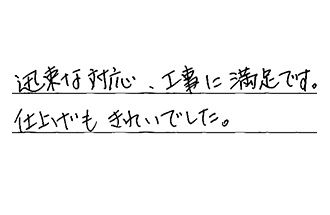 迅速な対応、工事に満足です。
仕上げもきれいでした。